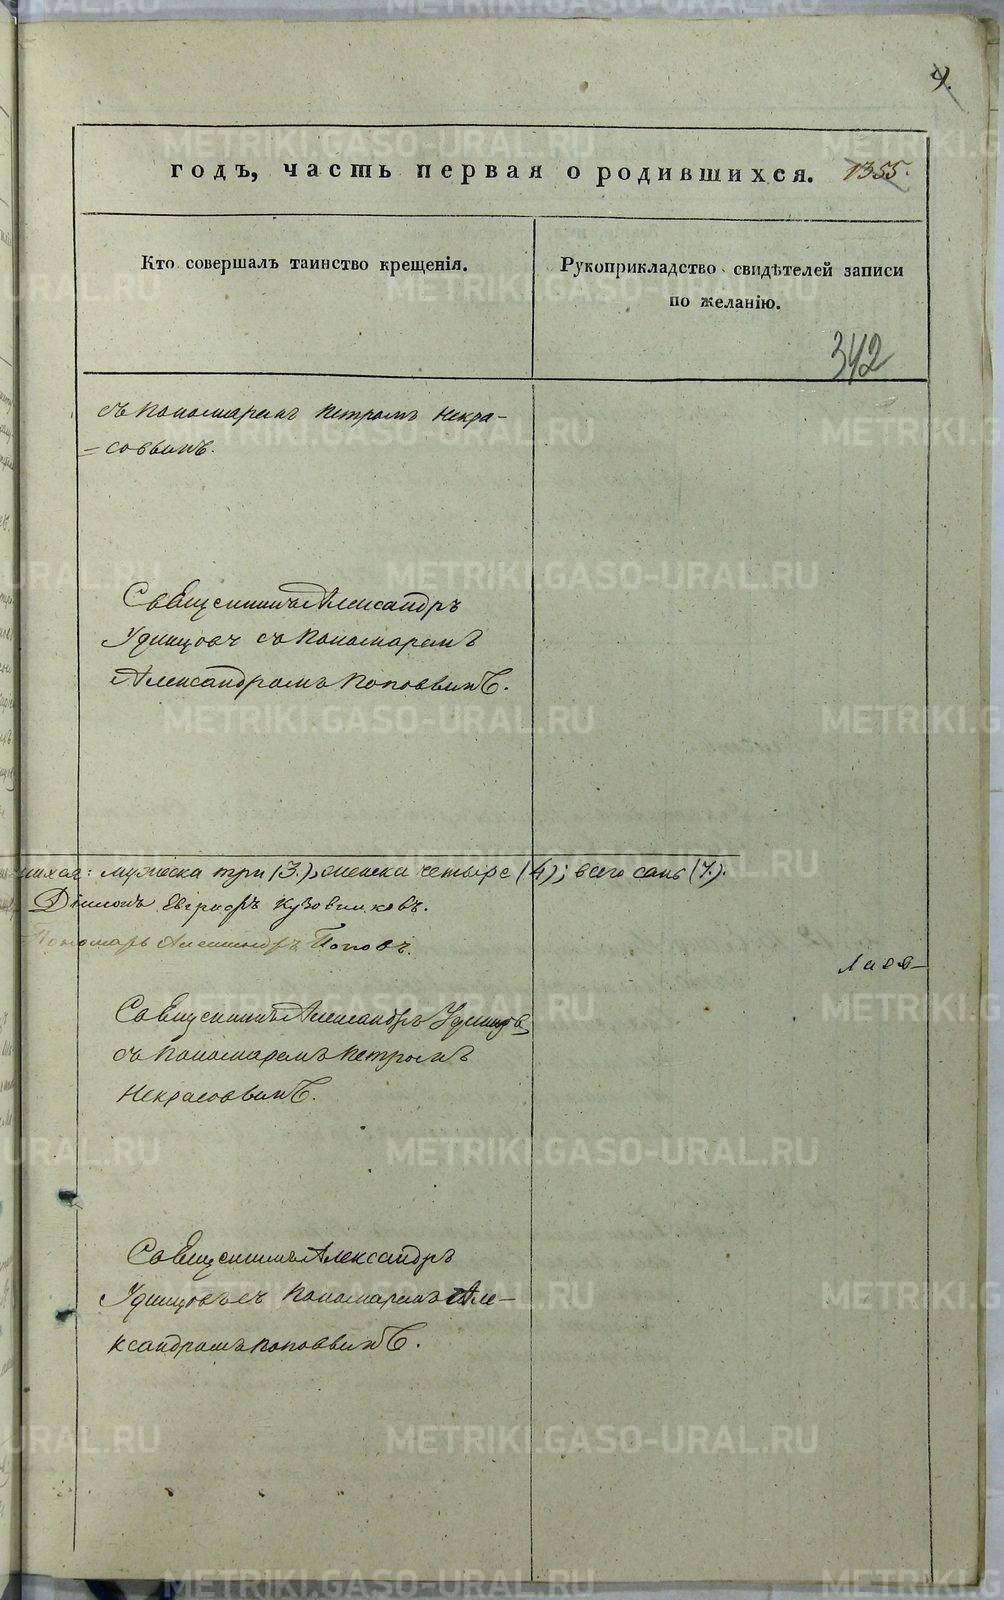 4.
годъ, часть первая о родившихся. 1355.
Кто совершалъ таинство крещенія.
Рукоприкладство свидѣтелей записи
по желанію.
342
съ Пономаремъ Петромъ Некра-
=совымъ.
Священникъ Александръ
Удинцовъ съ Пономаремъ
Александромъ Поповымъ.
шихся: мужеска три (3.), женска четыре (4); всего семь (7.).
Діаконъ Евграфъ Кузовниковъ.
Пономарь Александръ Поповъ.
Священникъ Александръ Удинцовъ
съ Пономаремъ Петромъ
Некрасовымъ.
Священникъ Александръ
Удинцовъ съ Пономаремъ Але-
ксандромъ Поповымъ.
METRIKI.GASO-URAL.RU